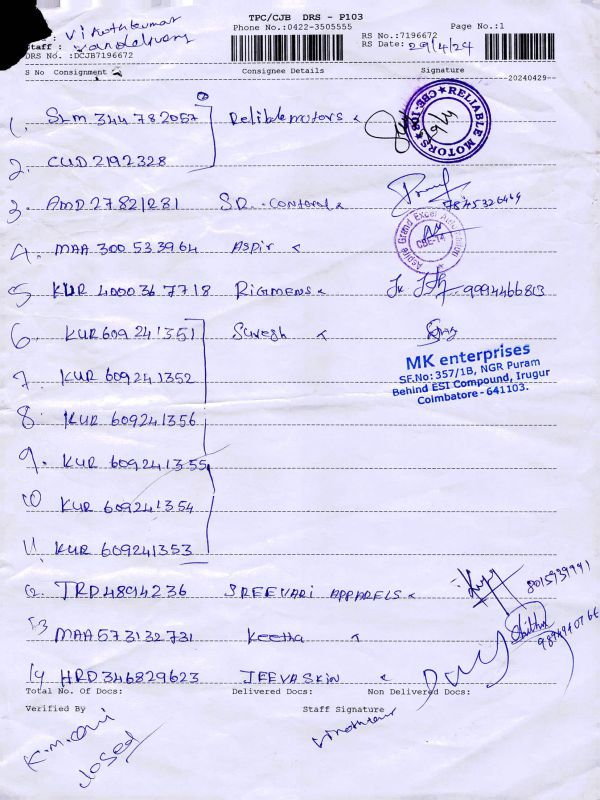 TPC/CJB DRS - P103
Phone No.:0422-3505555
Page No.:1
RS No.:7196672
RS Date: 29/4/24
Staff : Vinothkumar
Vandelivery
DRS No. :DCJB7196672
S No Consignment
Consignee Details
Signature
20240429
1. SLM 344782057 Reliblemotors
29/4
RELIABLE MOTORS ★ CBE-103 ★
2. CUD2192328
3. AMD27821281 S.R. Contoral
7845326469
4. MAA 300533964 Aspir
Aspire Grand Excel Automation
CBE-14
5 KUR 4000367718 Rigmens 9994466813
6. KUR609241351 Suresh
MK enterprises
SF.No:357/1B, NGR Puram
Behind ESI Compound, Irugur
Coimbatore-641103.
7. KUR 609241352
8. KUR 609241356
9. KUR 609241355
10 KUR 609241354
11. KUR 609241353
12. TRD4894236 SREEVARI APPARELS
8015939941
13 MAA573132731 Keetha
14 HRD346829623 JEEVASKIN
Total No. Of Docs:
Delivered Docs:
Non Delivered Docs:
Verified By
Staff Signature
K.M.Cavi
Josed
Vinothkumar